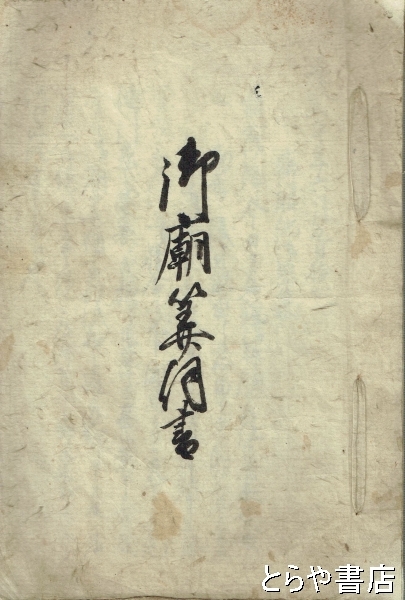 御廟算書
とらや書店